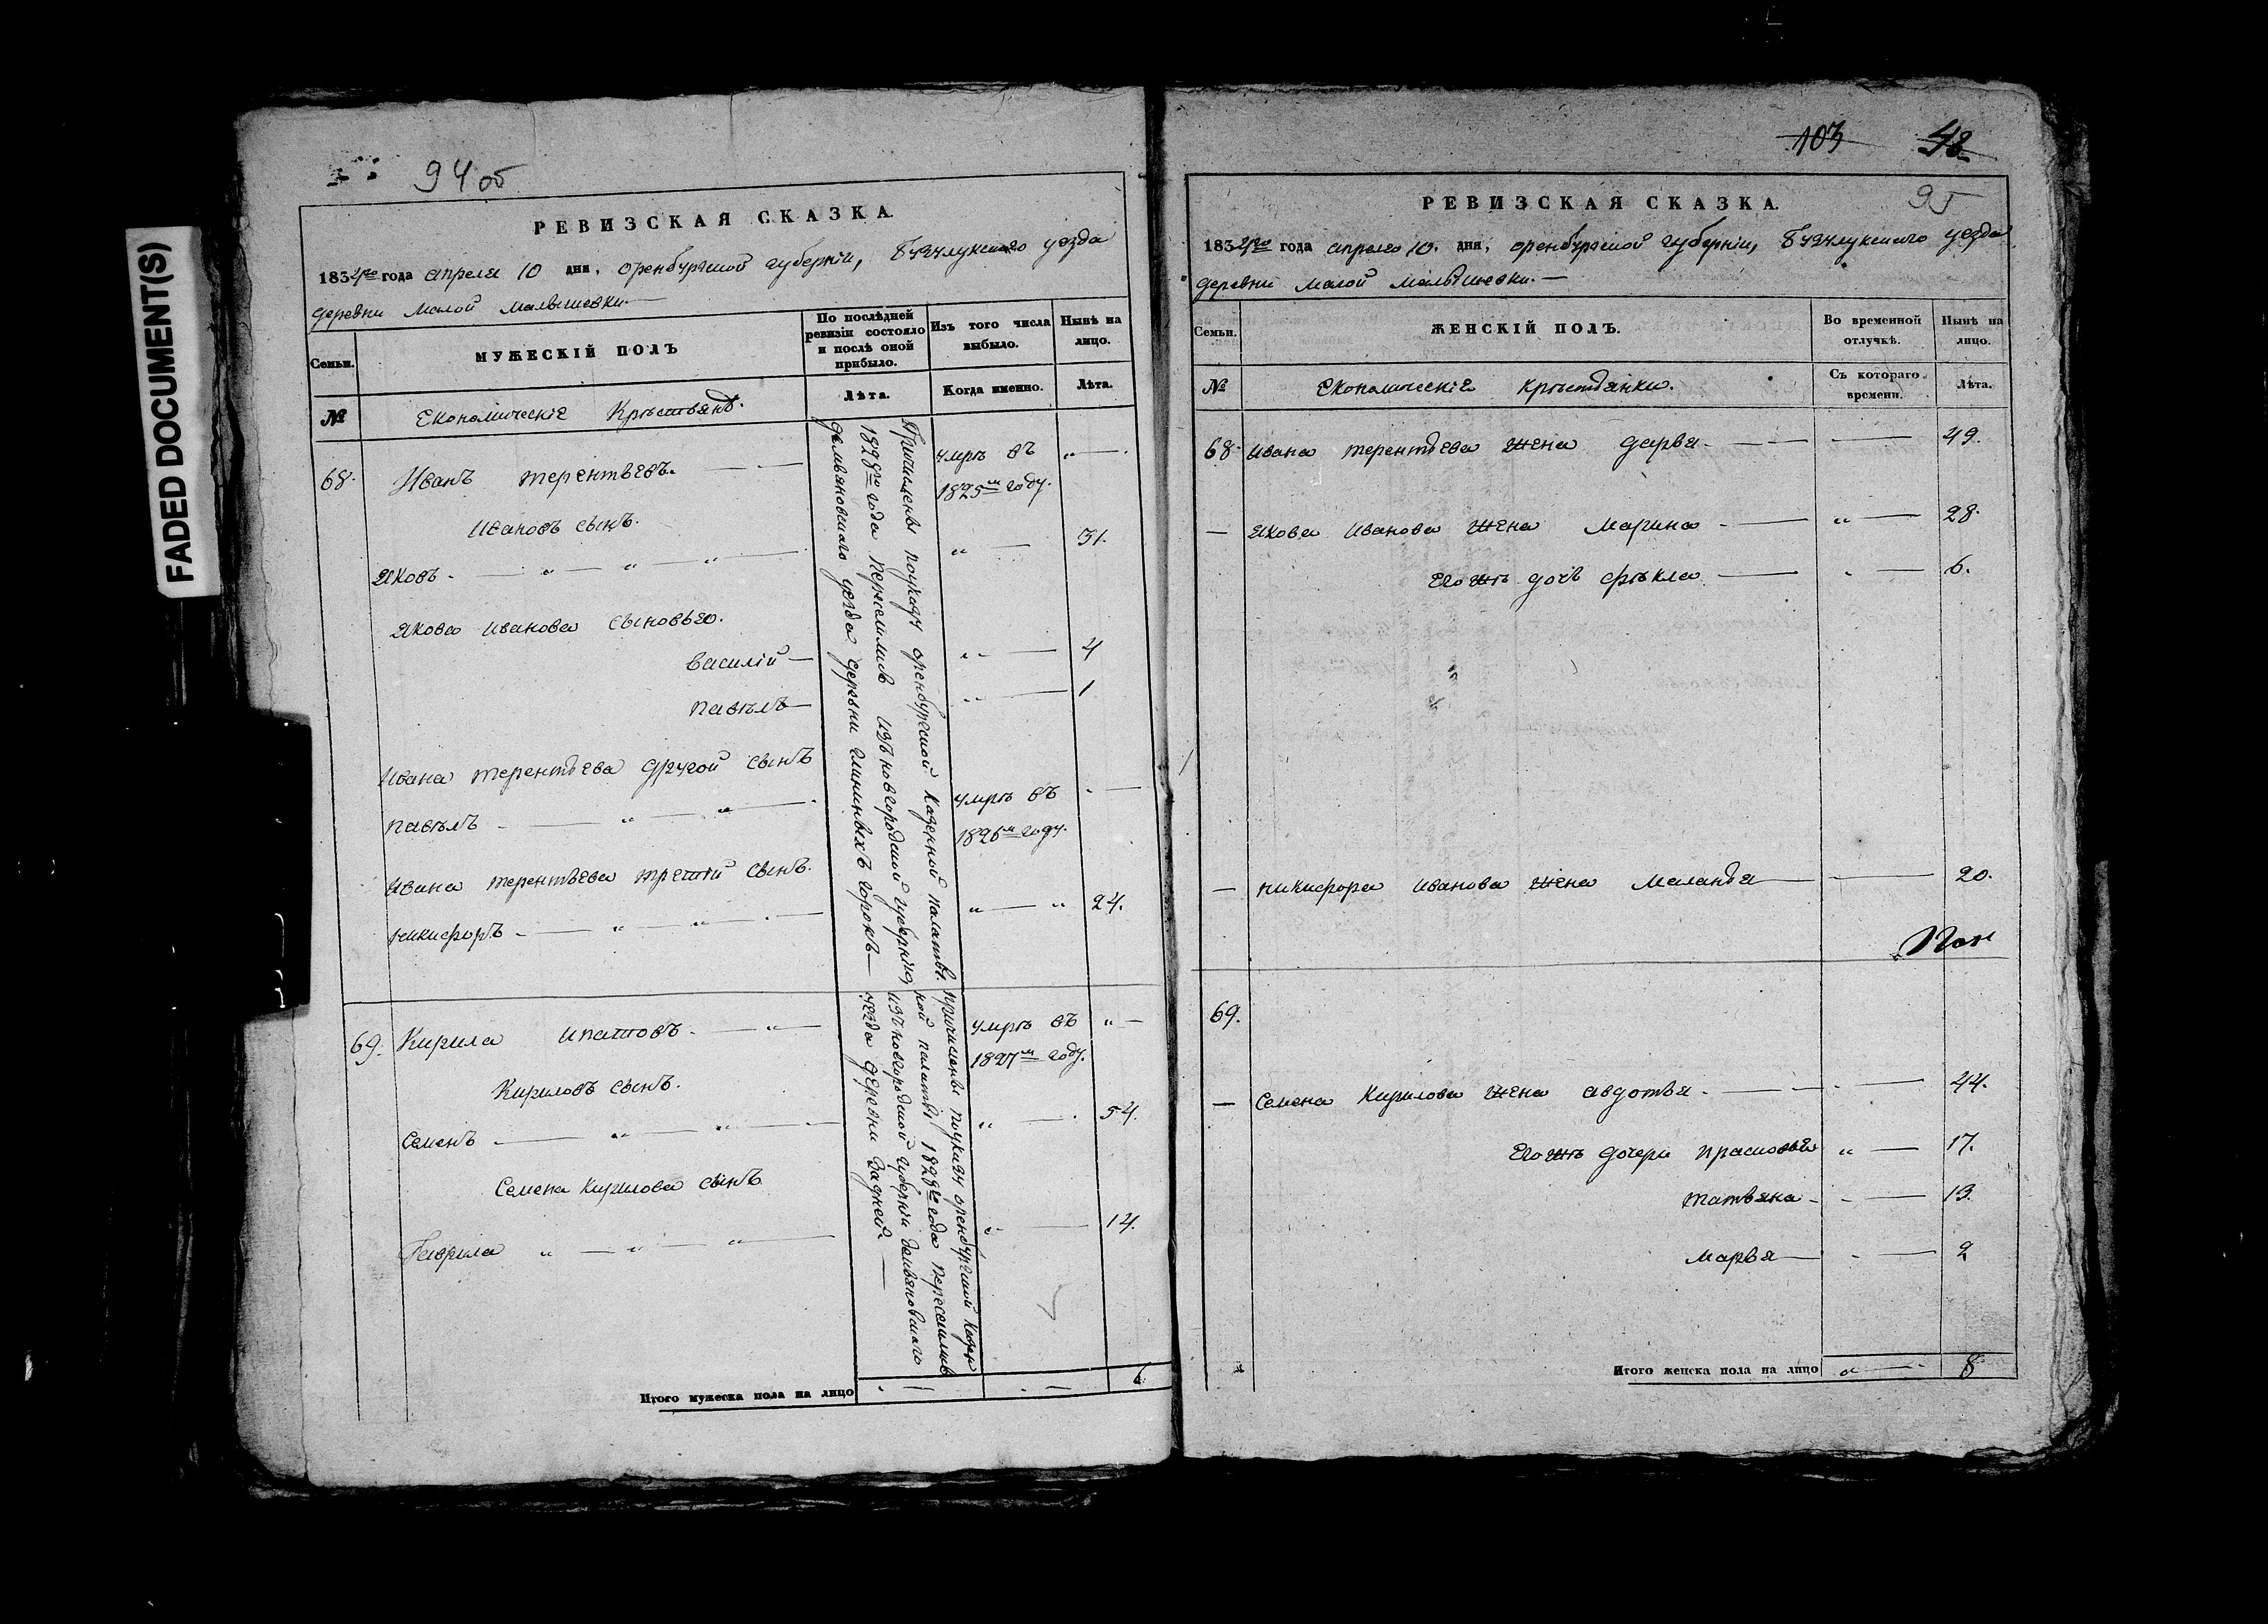 FADED DOCUMENT(S)
94 об
РЕВИЗСКАЯ СКАЗКА.
1834го года апреля 10 дня, оренбургской губерніи, бузулукскаго уезда
деревни малой малышевки.—
Семьи.
МУЖЕСКІЙ ПОЛЪ
По послѣдней ревизіи состояло и послѣ оной прибыло.
Изъ того числа выбыло.
Нынѣ на лицо.
№
Економическіе Крѣстьянѣ.
Лѣта.
Когда именно.
Лѣта.
68. Иванъ терентьевъ. умрѣ въ 1825м году.
Ивановъ сынъ.
Яковъ 31.
Якова Иванова сыновья.
Василій 4
Павѣлъ 1
Ивана терентьева другой сынъ
Павѣлъ умрѣ въ 1826м году.
Ивана терентьева третій сынъ.
никифоръ 24.
Причислены поуказу оренбургской казенной палаты.
1828го года Переселились изъ новгородской губерніи
демьяновскаго уезда деревни глининыхъ горокъ
69. Кирила ипатовъ. умрѣ въ 1827м году.
Кириловъ сынъ.
Семенъ 54.
Семена Кирилова сынъ
Гаврила 14.
причислены поуказу оренбургской казен
ной палаты 1828го года переселились
изъ новгородской губерніи демьяновскаго
уезда деревни задней
Итого мужеска пола на лицо 6.
103 48
95
РЕВИЗСКАЯ СКАЗКА.
1834го года апреля 10. дня, оренбургской губерніи, бузулукскаго уезда
деревни малой малышевки.—
Семьи.
ЖЕНСКІЙ ПОЛЪ.
Во временной отлучкѣ.
Нынѣ на лицо.
№
Економическіе крѣстьянки.
Съ котораго времени.
Лѣта.
68. ивана терентьева жена дарья 49.
якова иванова жена марина 28.
егожъ дочь фѣкла 6.
никифора иванова жена маланья 20.
69.
Семена Кирилова жена авдотья 44.
егожъ дочери прасковья 17.
татьяна 13.
марья 2
Итого женска пола на лицо 8